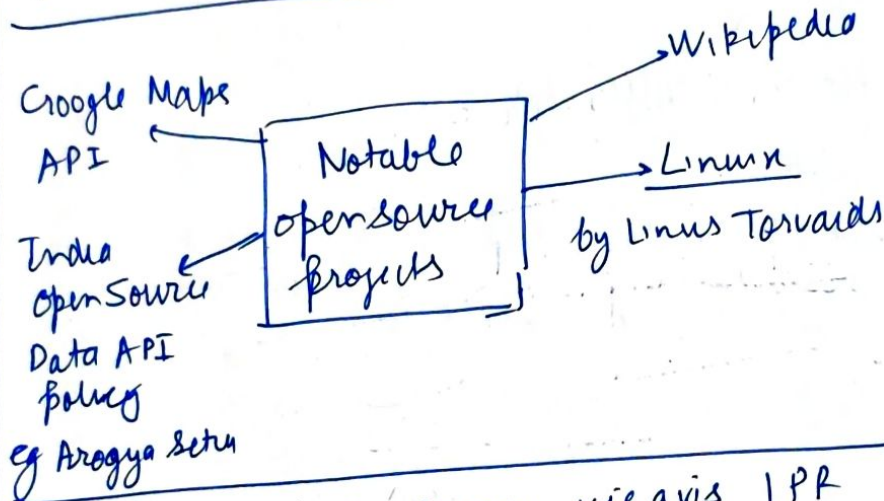 Google Maps
API
India
OpenSource
Data API
policy
eg Arogya Setu
Notable
opensource
projects
Wikipedia
Linux
by Linus Torvalds
vis a vis IPR